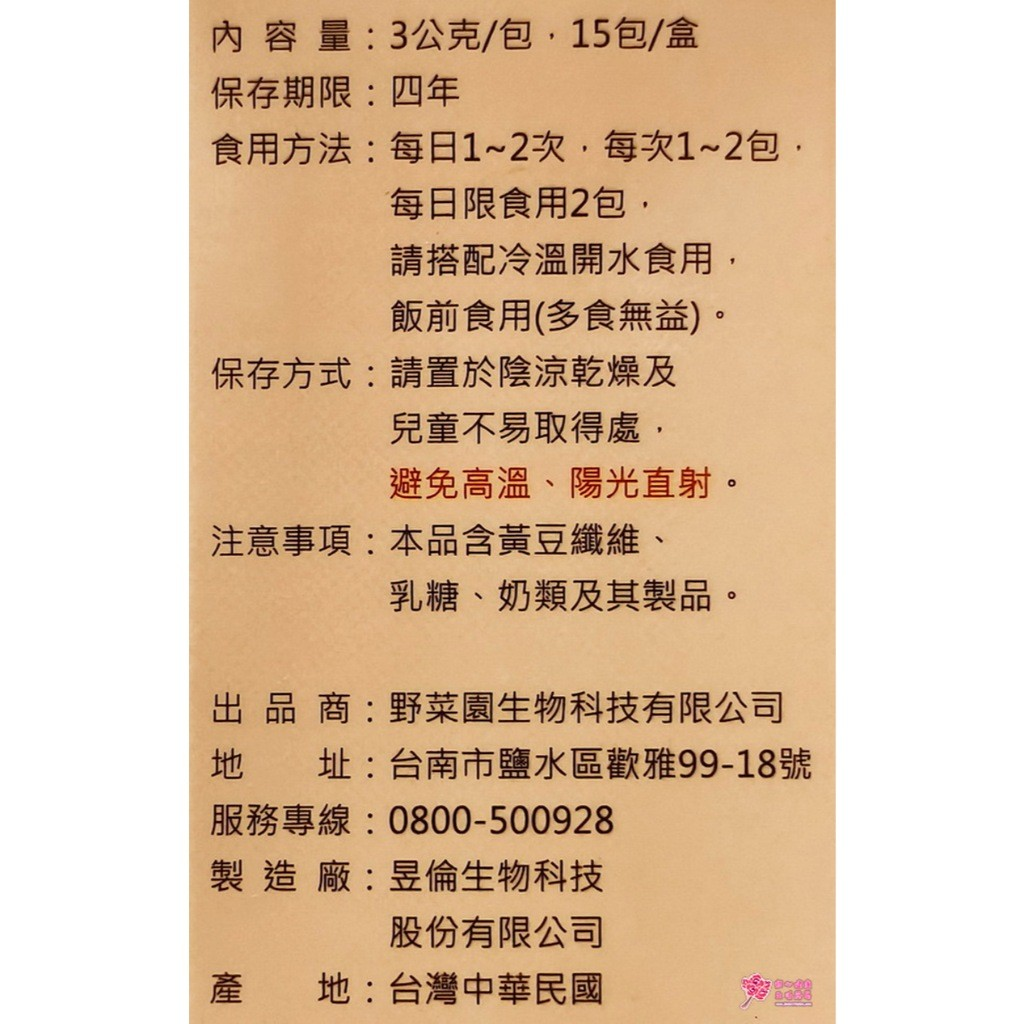 內容量：3公克/包，15包/盒
保存期限：四年
食用方法：每日1~2次，每次1~2包，
每日限食用2包，
請搭配冷溫開水食用，
飯前食用(多食無益)。
保存方式：請置於陰涼乾燥及
兒童不易取得處，
避免高溫、陽光直射。
注意事項：本品含黃豆纖維、
乳糖、奶類及其製品。
出品商：野菜園生物科技有限公司
地址：台南市鹽水區歡雅99-18號
服務專線：0800-500928
製造廠：昱倫生物科技
股份有限公司
產地：台灣中華民國